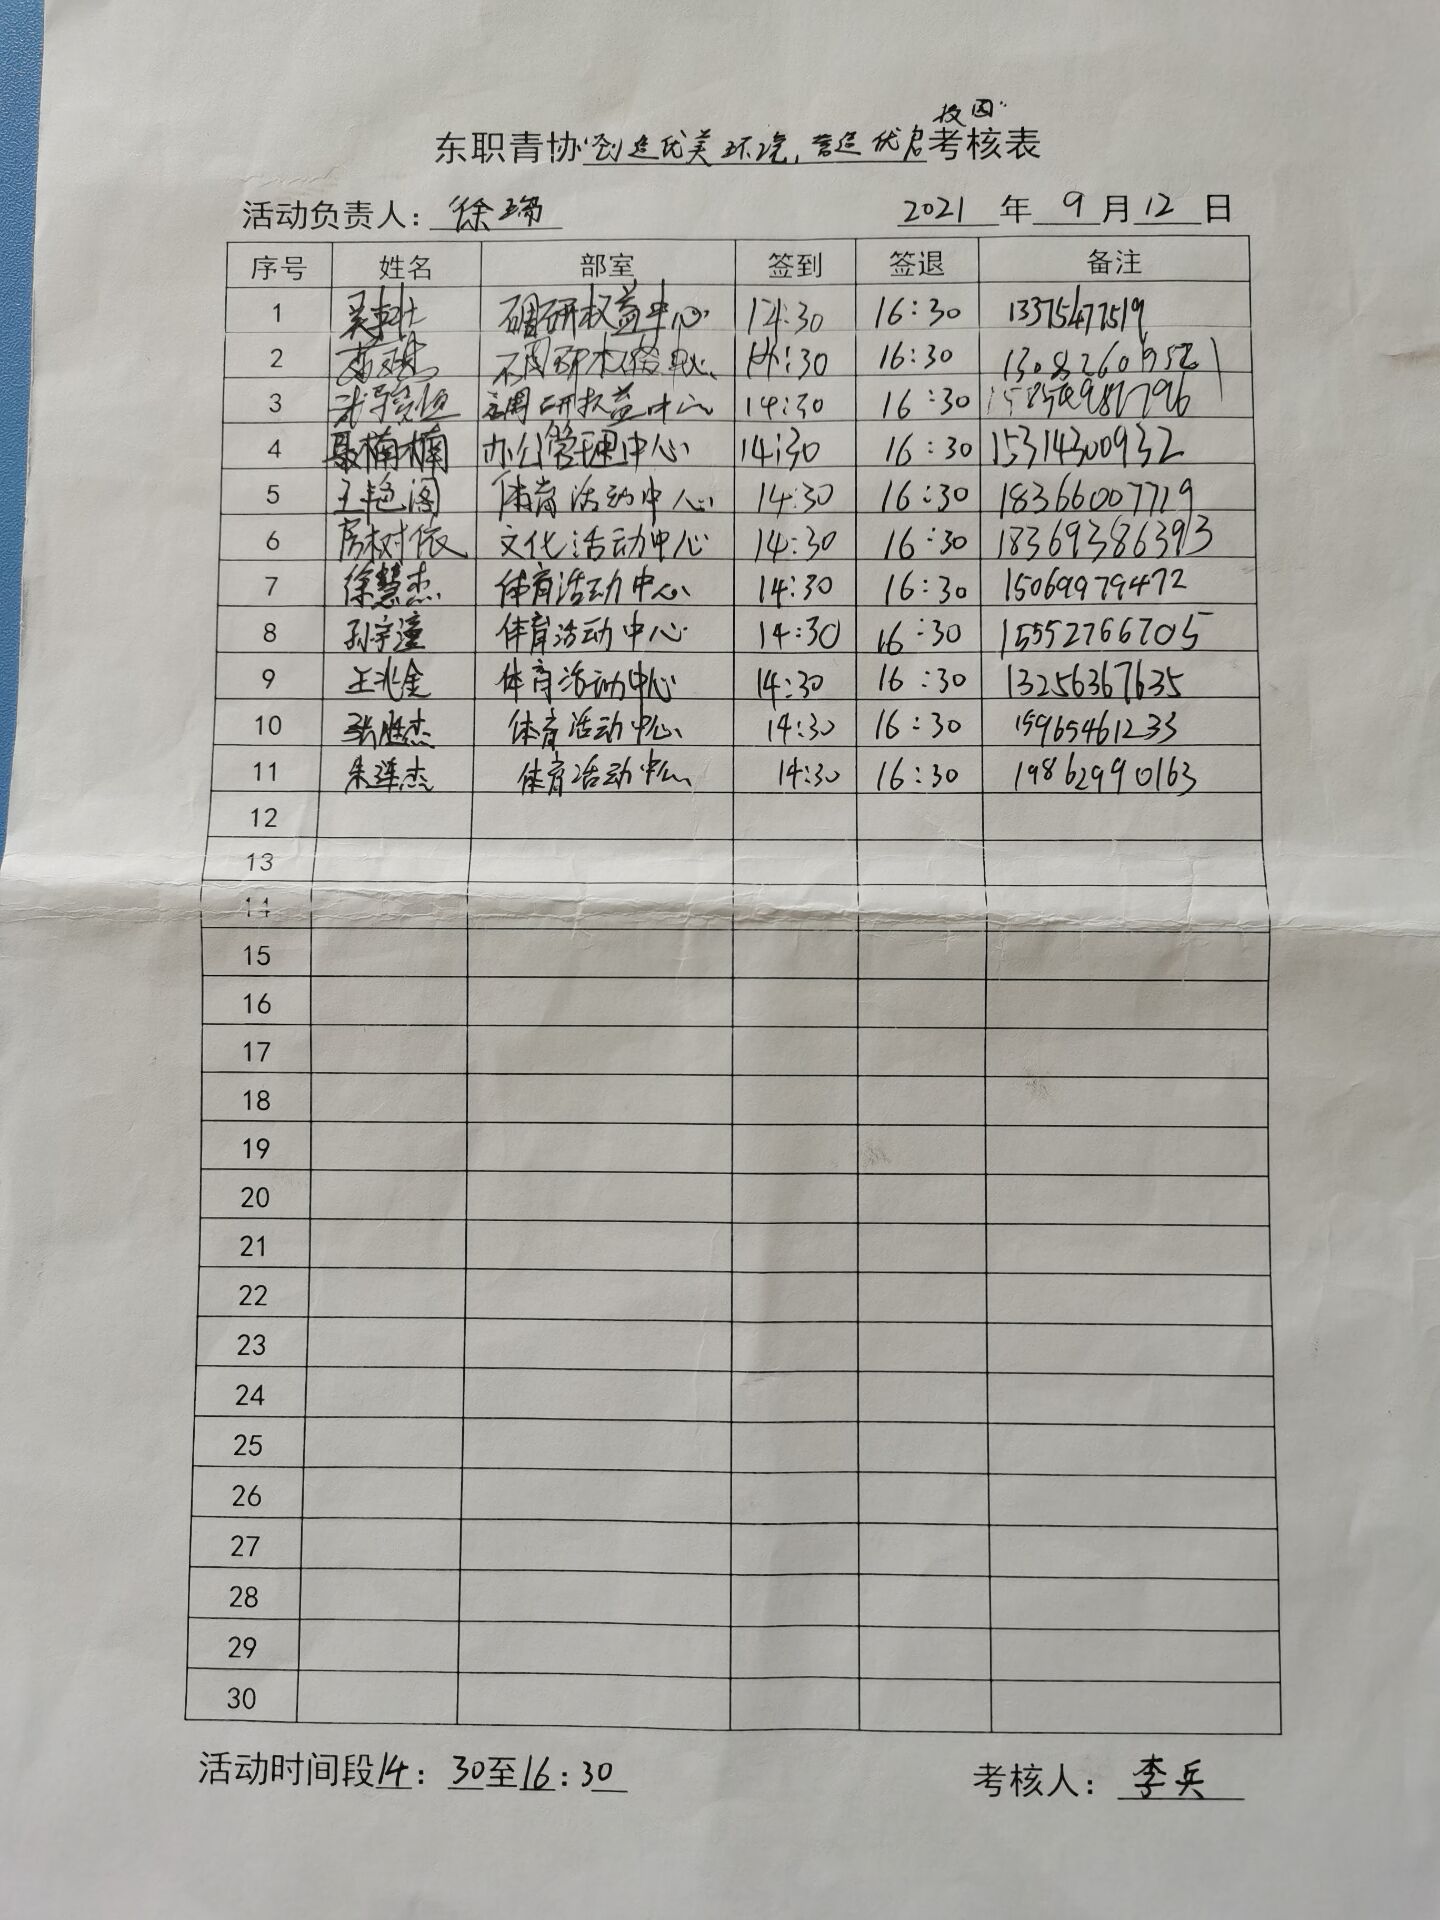 校园"
东职青协"创造优美环境,营造优良考核表
活动负责人: 徐瑞 2021 年 9 月 12 日
序号 姓名 部室 签到 签退 备注
1 调研权益中心 14:30 16:30 13375477519
2 调研权益中心 14:30 16:30
3 调研权益中心 14:30 16:30
4 聂楠楠 办公管理中心 14:30 16:30 15314300932
5 王艳阁 体育活动中心 14:30 16:30 18366007719
6 房树依 文化活动中心 14:30 16:30 18369386393
7 徐慧杰 体育活动中心 14:30 16:30 15069979472
8 孙宇潼 体育活动中心 14:30 16:30 15552766705
9 王兆金 体育活动中心 14:30 16:30 13256367635
10 张胜杰 体育活动中心 14:30 16:30 15965461233
11 朱连杰 体育活动中心 14:30 16:30 19862990163
12
13
14
15
16
17
18
19
20
21
22
23
24
25
26
27
28
29
30
活动时间段14: 30至16:30 考核人: 李兵